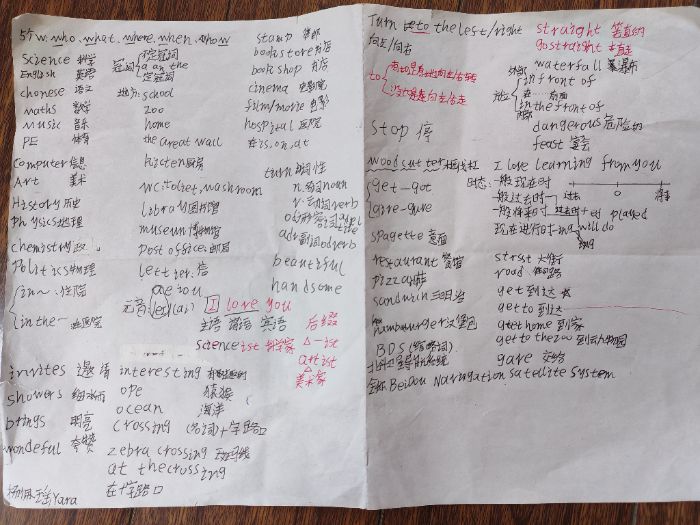 5个w, who, what, where, when, how
science 科学
English 英语
chonese 语文
maths 数学
music 音乐
PE 体育
computer 信息
Art 美术
History 历史
Physics 地理
chemistry 政
politics 物理
in~
in the~
冠词 不定冠词
a an the
定冠词
地点: school
zoo
home
the great wall
kicten 厨房
wc. toliet, washroom
library 图书馆
museum 博物馆
post office 邮局
letter. 信
aeiou
元音
I love you
主语 谓语 宾语
scienceist 科学家
stamp 邮票
bookstore 书店
bookshop 书店
cinema 电影院
film/movie 电影
hospital 医院
in. on. at
turn 词性
n. 名词 noun
v. 动词 verb
adj 形容词
adv 副词 adverb
beautiful
handsome
后缀
-ist
artist
美术家
invites 邀请
showers
brings 明亮
wondeful 夸赞
interesting 有趣的
ope 猿猴
ocean 海洋
crossing (名词) 十字路口
zebra crossing 斑马线
at the crossing
在十字路口
Yara
Turn to the left/right
向左/向右
to
straight 笔直的
go straight 直走
waterfall 瀑布
in front of
在……前面
in the front of
dangerous 危险的
feast 宴会
stop 停
I love learning from you
get-got
give-gave
时态: 一般现在时
一般过去时
一般将来时
现在进行时
过去时+ed played
will do
spagette 意面
restaurant 餐馆
pizza 披萨
sandwich 三明治
hamburger 汉堡包
BDS (缩略词)
北斗卫星导航系统
全称 Beidou Navigation Satellite System
street 大街
road 路
get 到达
get to 到达
get home 到家
get to the zoo 到动物园
gave 交给